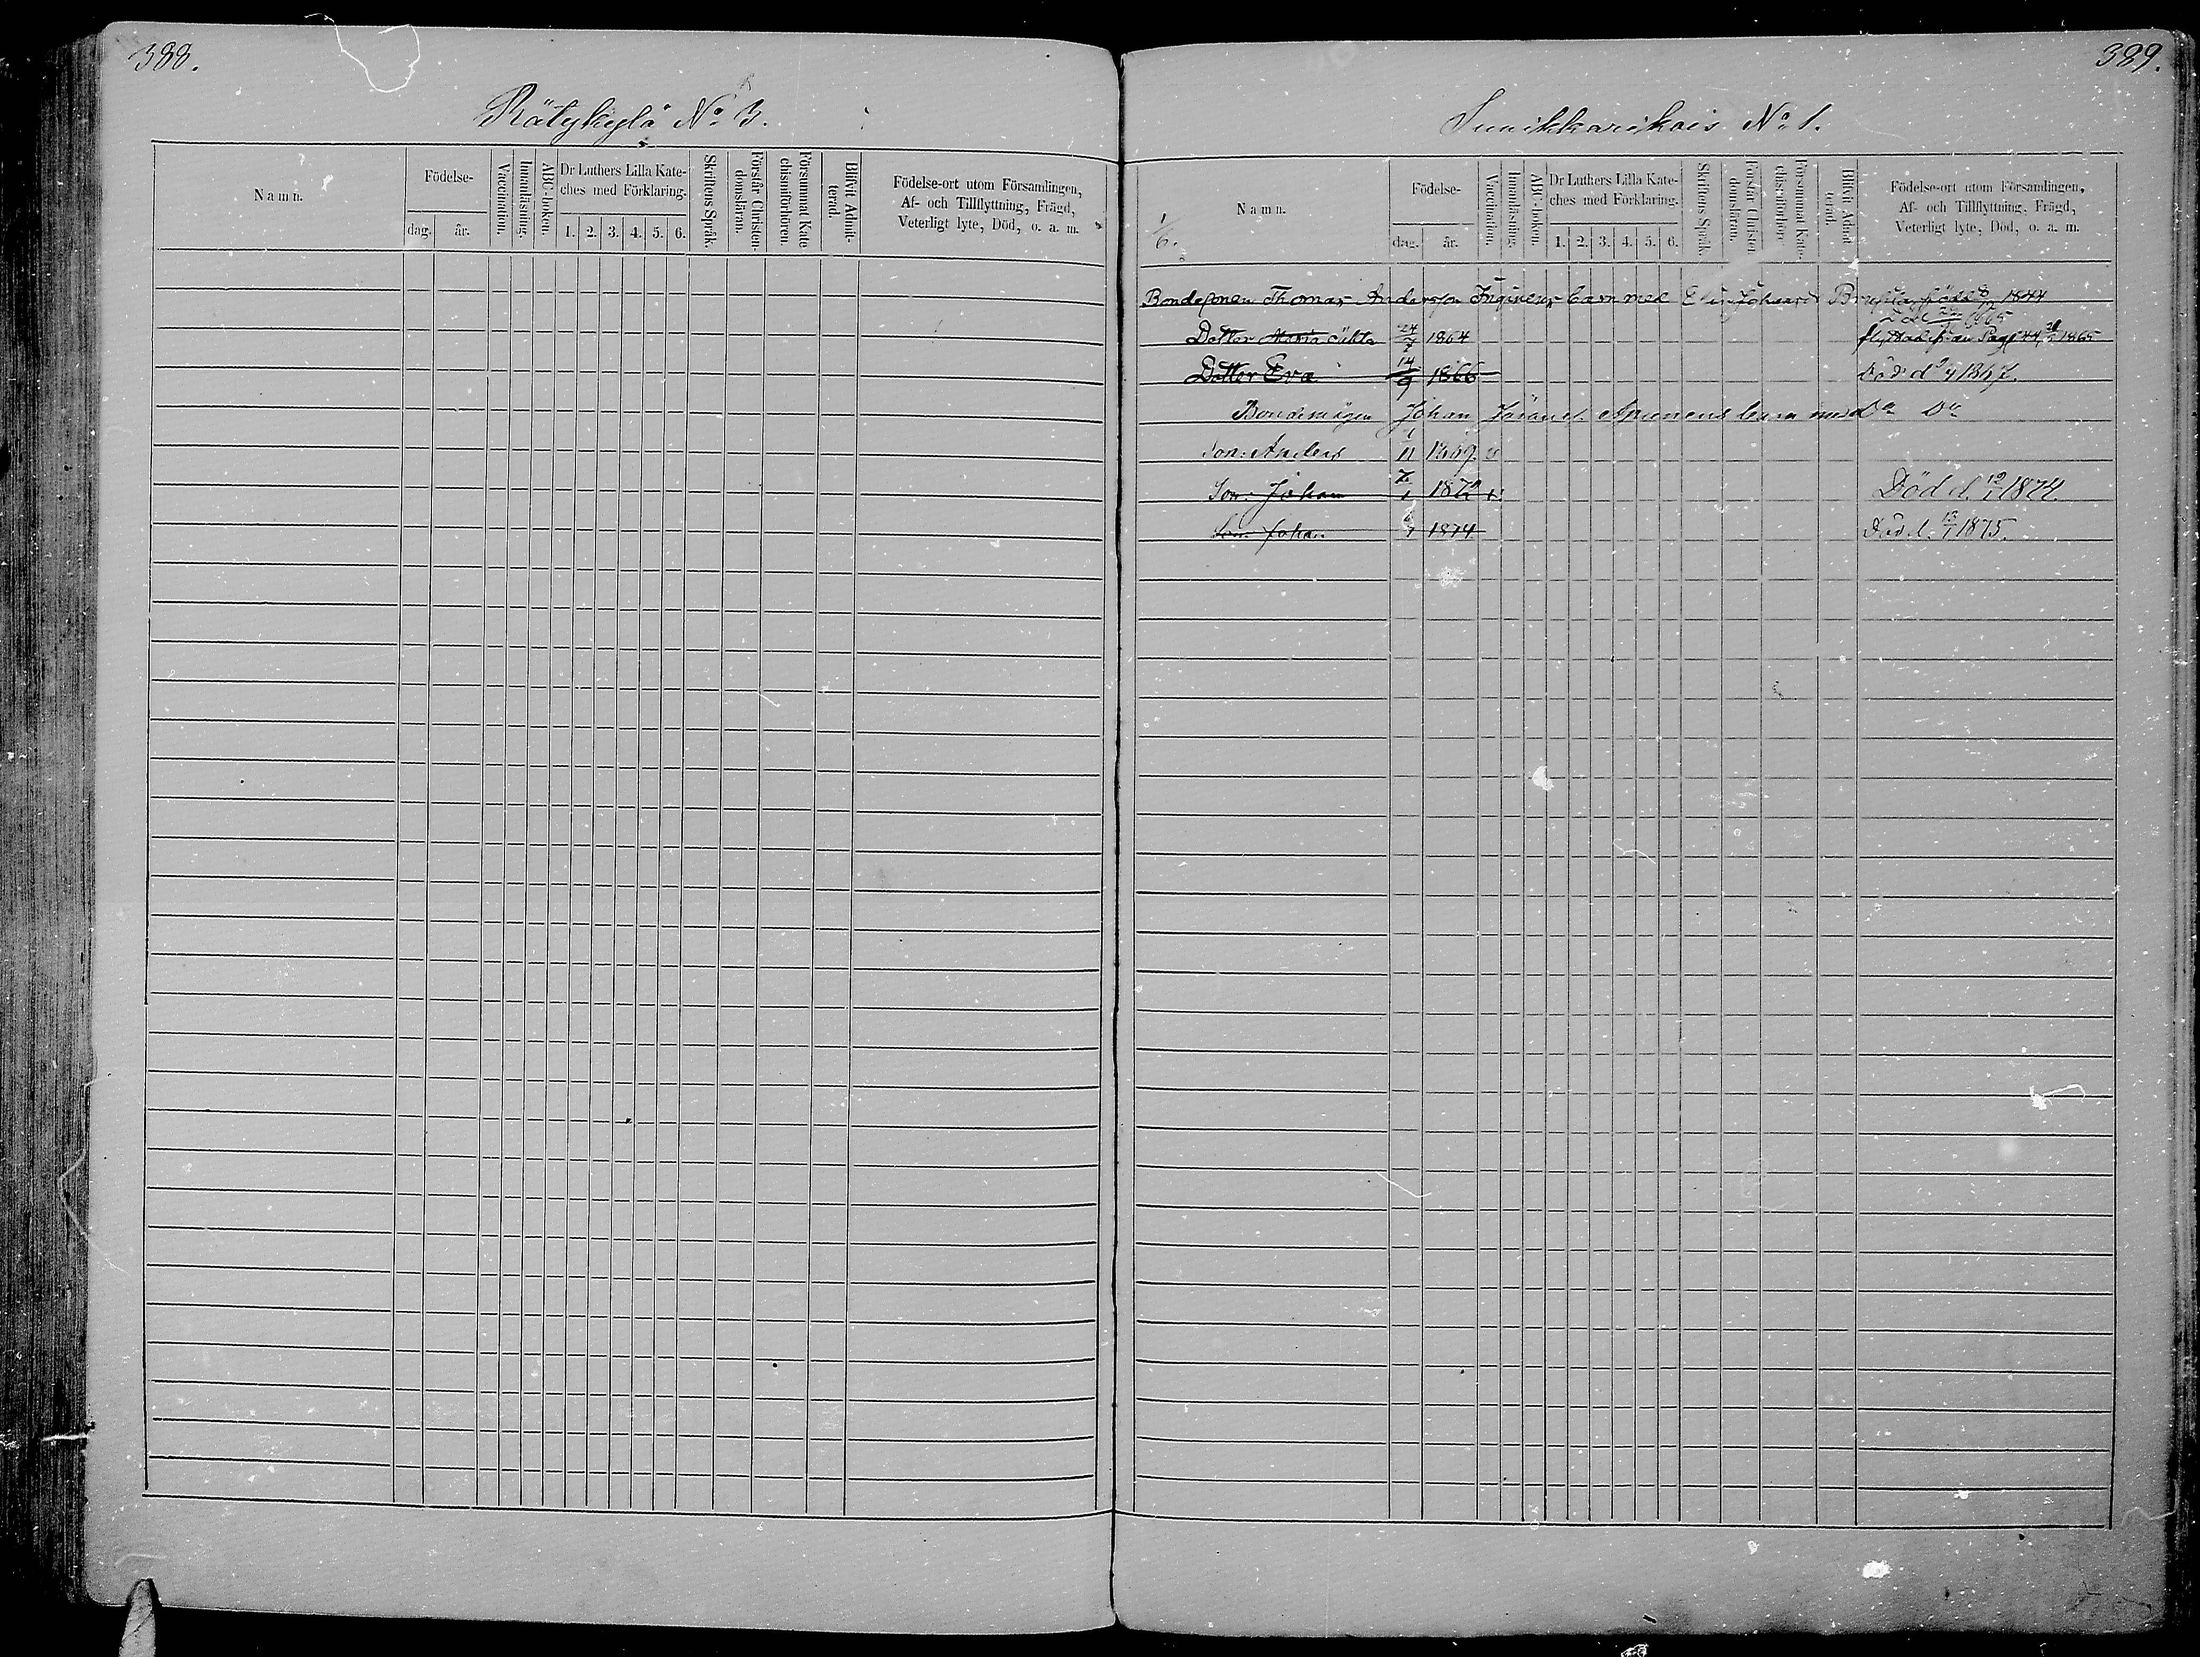 388.
Rätykylä No 3.
Namn.
Födelse-
dag.
år.
Vaccination.
Innanläsning.
ABC-boken.
Dr Luthers Lilla Kate-
ches med Förklaring.
1. 2. 3. 4. 5. 6.
Skriftens Språk.
Förstår Christen-
domsläran.
Försummat Kate
chismiförhören.
Blifvit Admit-
terad.
Födelse-ort utom Församlingen,
Af- och Tillflyttning, Frägd,
Veterligt lyte, Död, o. a. m.
389.
No 1.
1/6.
Namn.
Födelse-
dag.
år.
Vaccination.
Innanläsning.
ABC-boken.
Dr Luthers Lilla Kate-
ches med Förklaring.
1. 2. 3. 4. 5. 6.
Skriftens Språk.
Förstår Christen-
domsläran.
Försummat Kate-
chismiförhör.
Blifvit Admit-
terad.
Födelse-ort utom Församlingen,
Af- och Tillflyttning, Frägd,
Veterligt lyte, Död, o. a. m.
Thomas Andersson barn med född 1844
Dotter Maria 24/7 1864 1865
Dotter Eva 14/9 1866 Död d 1867.
Johan barn med Do Do
Son: Anders 1/11 1869 v
Son: Johan 1872 v. Död d. 1874
Son: Johan 1874 Död d. 1875.